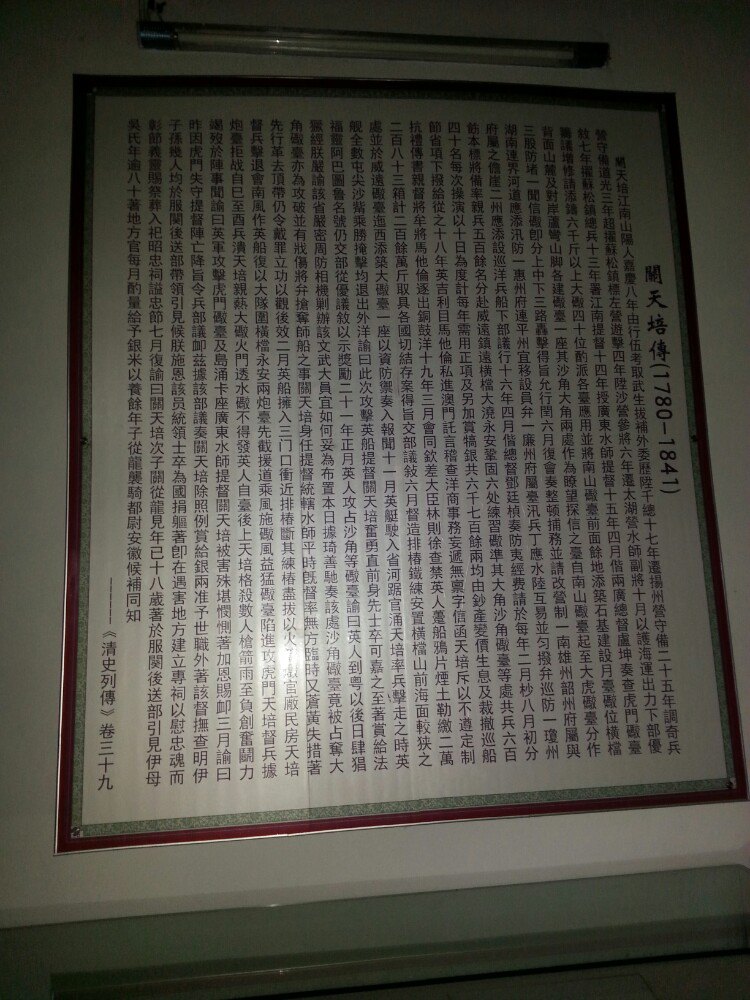 關天培傳(1780—1841)
關天培江南山陽人嘉慶八年由行伍考取武生拔補外委歷陞千總十七年遷揚州營守備二十五年調奇兵
營守備道光三年超擢蘇松鎮標左營遊擊四年陞沙營參將六年遷太湖營水師副將十月以護海運出力下部優
敘七年擢蘇松鎮總兵十三年署江南提督十四年授廣東水師提督十五年四月偕兩廣總督盧坤奏查虎門礮臺
籌議增修請添鑄六千斤以上大礮四十位酌派各臺應用並將南山礮臺前面餘地添築石基建設月臺礮位橫檔
背面山麓及對岸蘆彎山脚各建礮臺一座其沙角大角兩處作為瞭望探信之臺自南山礮臺起至大虎礮臺分作
三股防堵一聞信礮卽分上中下三路轟擊得旨允行閏六月復會奏整頓捕務並請改營制一南雄州韶州府屬與
湖南連界河道應添汛防一惠州府連平州宜移設員弁一廉州府屬臺汛兵丁應水陸互易並勻撥弁巡防一瓊州
府屬之儋崖二州應添設巡洋兵船下部議行十六年四月偕總督鄧廷楨奏防夷經費請於每年二月杪八月初分
飭本標將備率親兵五百餘名分赴威遠鎮遠橫檔大澆永安鞏固六处練習礮準其大角沙角礮臺等處共兵六百
四十名每次操演以十日為度計每年需用正項及另加賞犒銀共六千七百餘兩均由鈔產變價生息及裁撤巡船
節省項下撥給從之十八年英吉利目馬他倫私進澳門託言稽查洋商事務妄遞無禀字信函天培斥以不遵定制
抗禮傳書親督將牟將馬他倫逐出銅鼓洋十九年三月會同欽差大臣林則徐查禁英人躉船鴉片煙土勒繳二萬
二百八十三箱計二百餘萬斤取具各國切結存案得旨交部議敘六月督造排樁鐵練安置橫檔山前海面較狹之
處並於威遠礮臺迤西添築大礮臺一座以資防禦奏入報聞十一月英艇駛入省河踞官涌天培率兵擊走之時英
舰全數屯尖沙嘴乘勝掩擊均退出外洋諭曰此次攻擊英船提督關天培奮勇直前身先士卒可嘉之至著賞給法
福靈阿巴圖魯名號仍交部從優議敘以示獎勵二十一年正月英人攻占沙角等礮臺諭曰英人到粵以後日肆猖
獗經朕嚴諭該省嚴密周防相機剿辦該文武大員宜如何妥為布置本日據琦善馳奏該處沙角礮臺竟被占奪大
角礮臺亦為攻破並有戕傷將弁搶奪師船之事關天培身任提督統轄水師平時旣督率無方臨時又蒼黃失措著
先行革去頂帶仍令戴罪立功以觀後效二月英船擁入三门口衝近排樁斷其練樁盡拔以火官廠民房天培
督兵擊退會南風作英船復以大隊圍橫檔永安兩炮臺先截援道乘風施礮風益猛礮臺陷進攻虎門天培督兵據
炮臺拒战自巳至酉兵潰天培親爇大礮火門透水礮不得發英人自臺後上天培格殺數人槍箭雨至負創奮鬪力
竭歿於陣事聞諭曰英軍攻擊虎門礮臺及島涌卡座廣東水師提督關天培被害殊堪憫惻著加恩賜卹三月諭曰
昨因虎門失守提督陣亡降旨令兵部議卹茲據該部議奏關天培除照例賞給銀兩准予世職外著該督撫查明伊
子孫幾人均於服闋後送部帶領引見候朕施恩該员統領士卒為國捐軀著卽在遇害地方建立專祠以慰忠魂而
彰節義靈賜祭葬入祀昭忠祠謚忠節七月復諭曰關天培次子關從龍見年已十八歲著於服闋後送部引見伊母
吳氏年逾八十著地方官每月酌量給予銀米以養餘年子從龍襲騎都尉安徽候補同知
——————《清史列傳》卷三十九